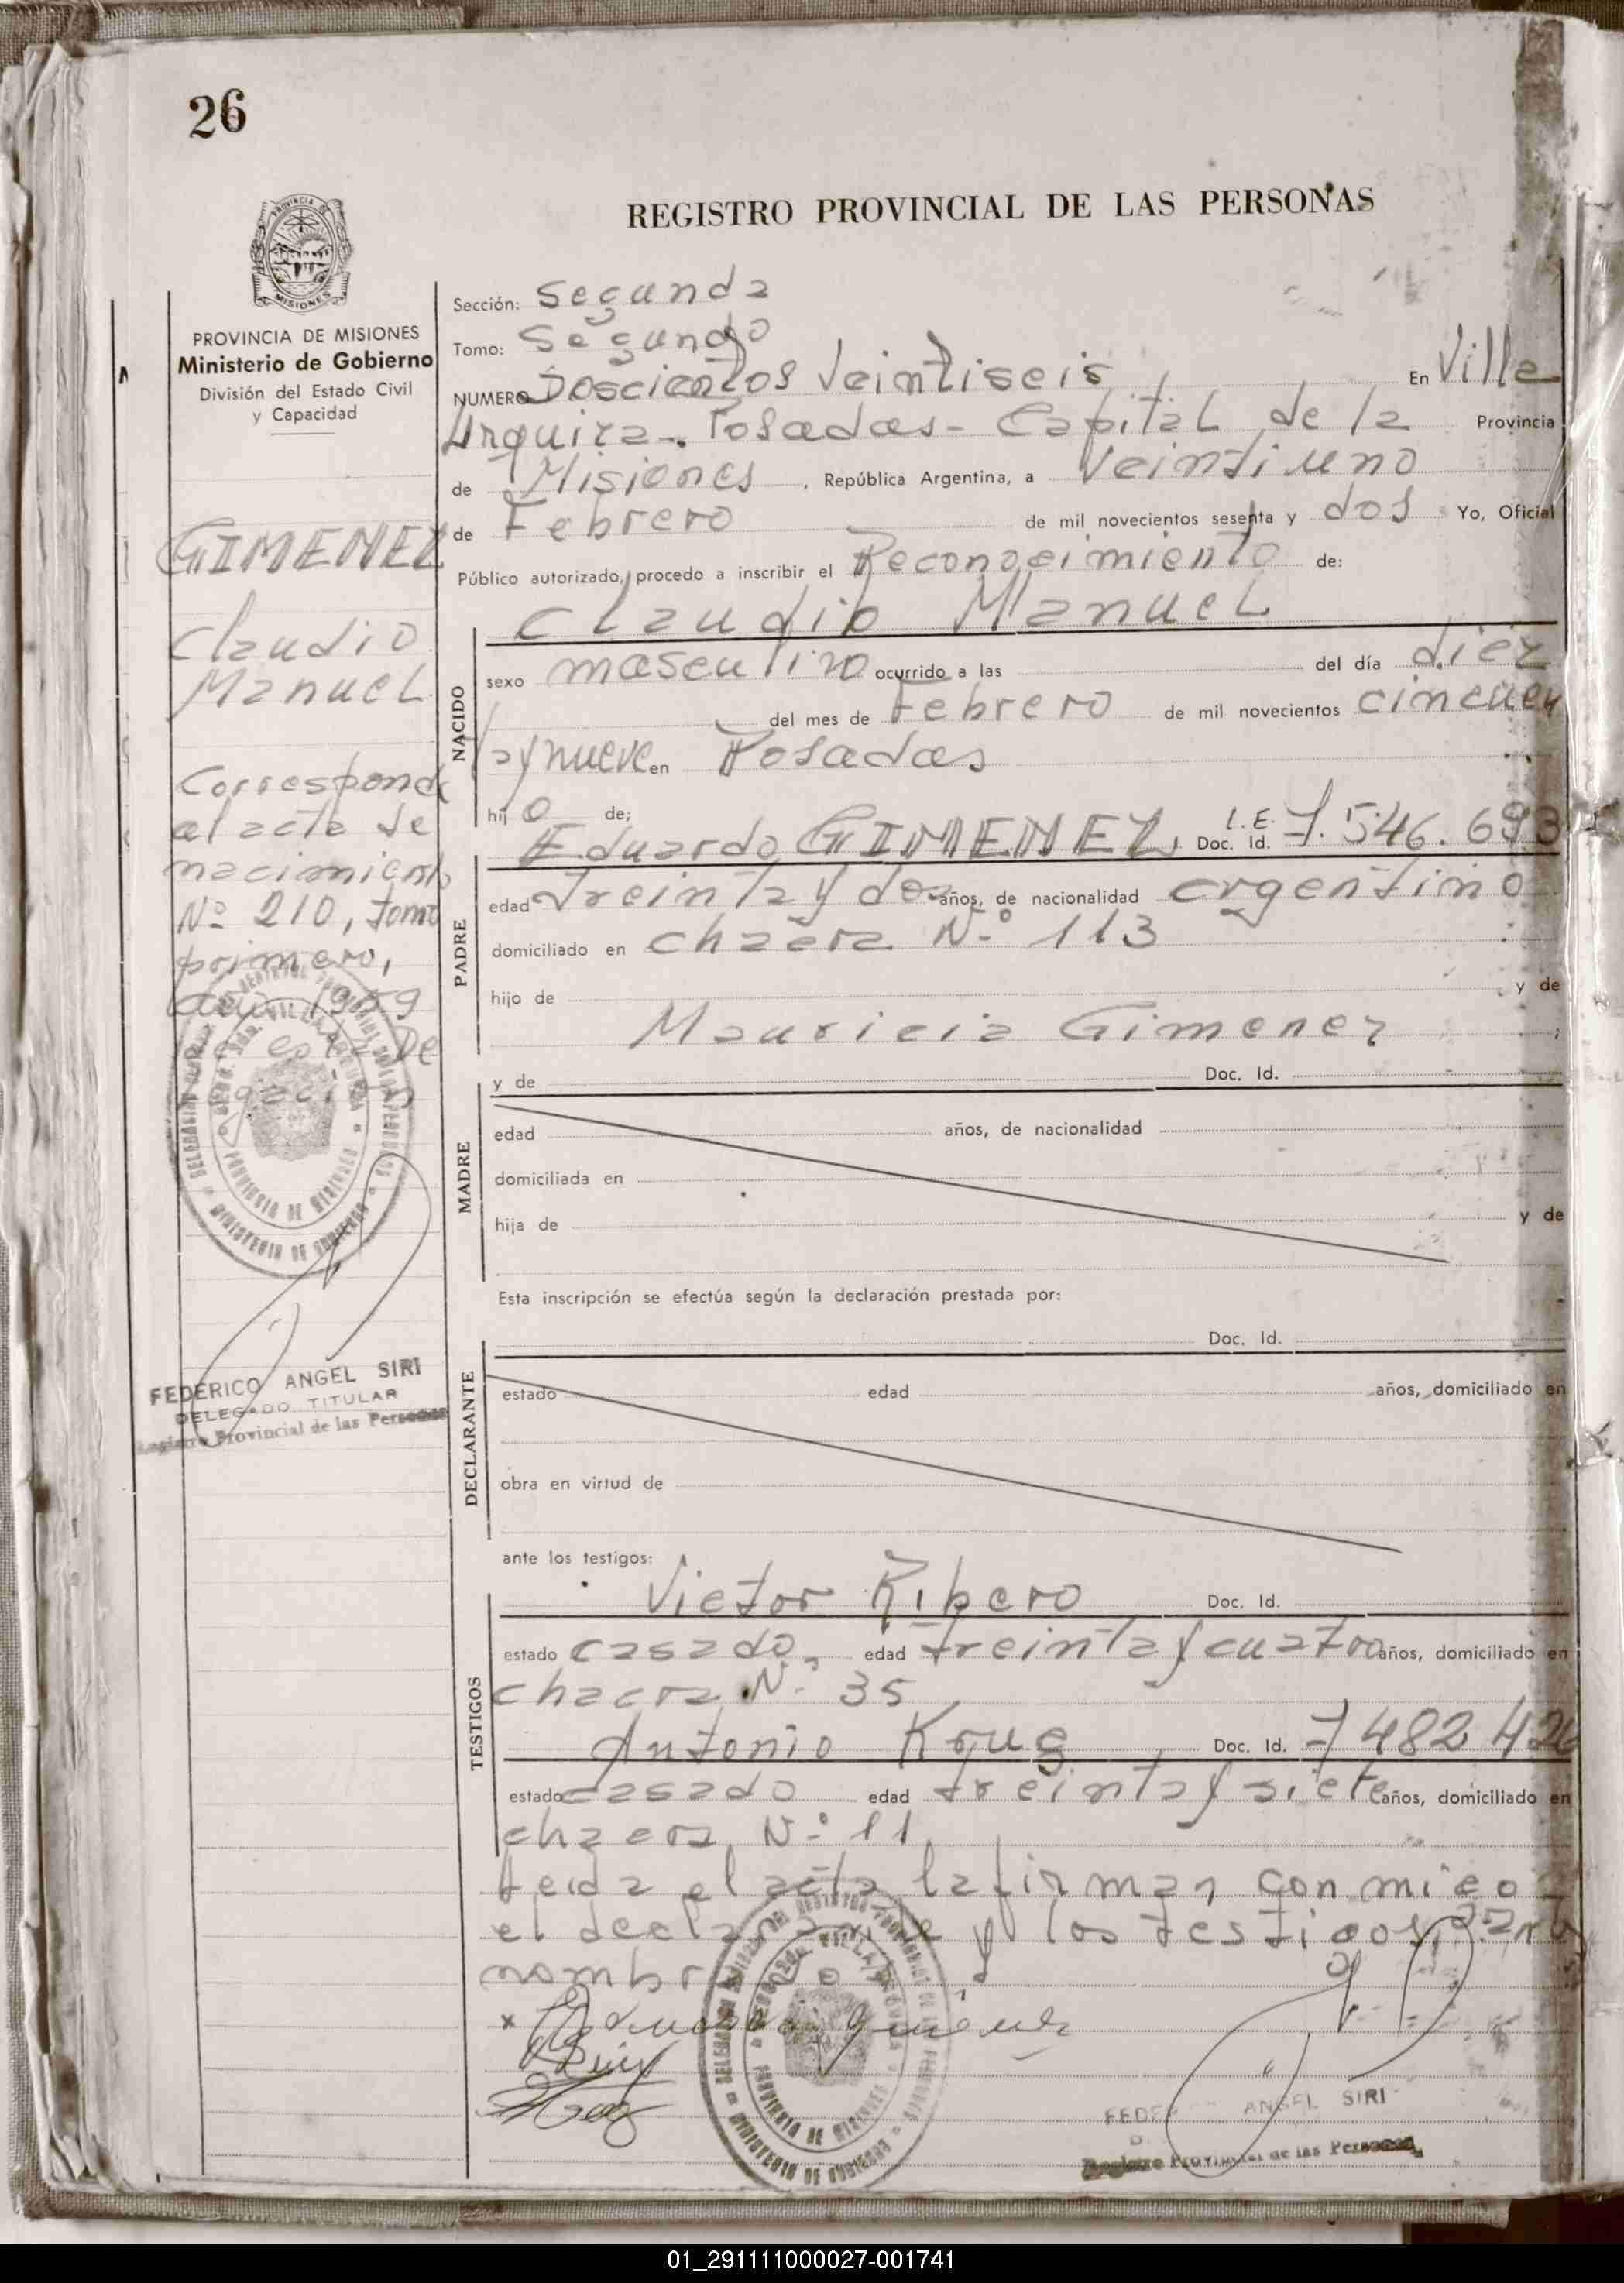 26
REGISTRO PROVINCIAL DE LAS PERSONAS
MISIONES
PROVINCIA DE MISIONES
Ministerio de Gobierno
División del Estado Civil
y Capacidad
GIMENEZ
Claudio
Manuel
Corresponde
al acta de
nacimiento
Nº 210, tomo
primero,
año 1959
de esta De
legación
FEDERICO ANGEL SIRI
DELEGADO TITULAR
Registro Provincial de las Personas
Sección: Segunda
Tomo: Segundo
NUMERO Doscientos Veintiseis En Villa
Urquiza-. Posadas- Capital de la Provincia
de Misiones, República Argentina, a Veintiuno
de Febrero de mil novecientos sesenta y dos Yo, Oficial
Público autorizado, procedo a inscribir el Reconocimiento de:
Claudio Manuel
NACIDO
sexo masculino ocurrido a las del día diez
del mes de Febrero de mil novecientos cincuen
ta y nueve en Posadas
hij o de;
Eduardo GIMENEZ, L.E. Doc. Id. 7.546.693
PADRE
edad treinta y dos años, de nacionalidad argentino
domiciliado en chacra N.º 113
hijo de y de
Mauricia Gimenez ;
MADRE
y de Doc. Id.
edad años, de nacionalidad
domiciliada en
hija de y de
Esta inscripción se efectúa según la declaración prestada por:
Doc. Id.
DECLARANTE
estado edad años, domiciliado en
obra en virtud de
ante los testigos:
TESTIGOS
Victor Ribero Doc. Id.
estado casado, edad treinta y cuatro años, domiciliado en
chacra N.º 35
Antonio Krug Doc. Id. 7 482 426
estado casado edad treinta y siete años, domiciliado en
chacra Nº 11,
Leida el acta la firman con migo
el declarante y los testigos
nombr
x Eduardo Gimenez
FEDE ANGEL SIRI
Registro Provincial de las Personas
01_291111000027-001741